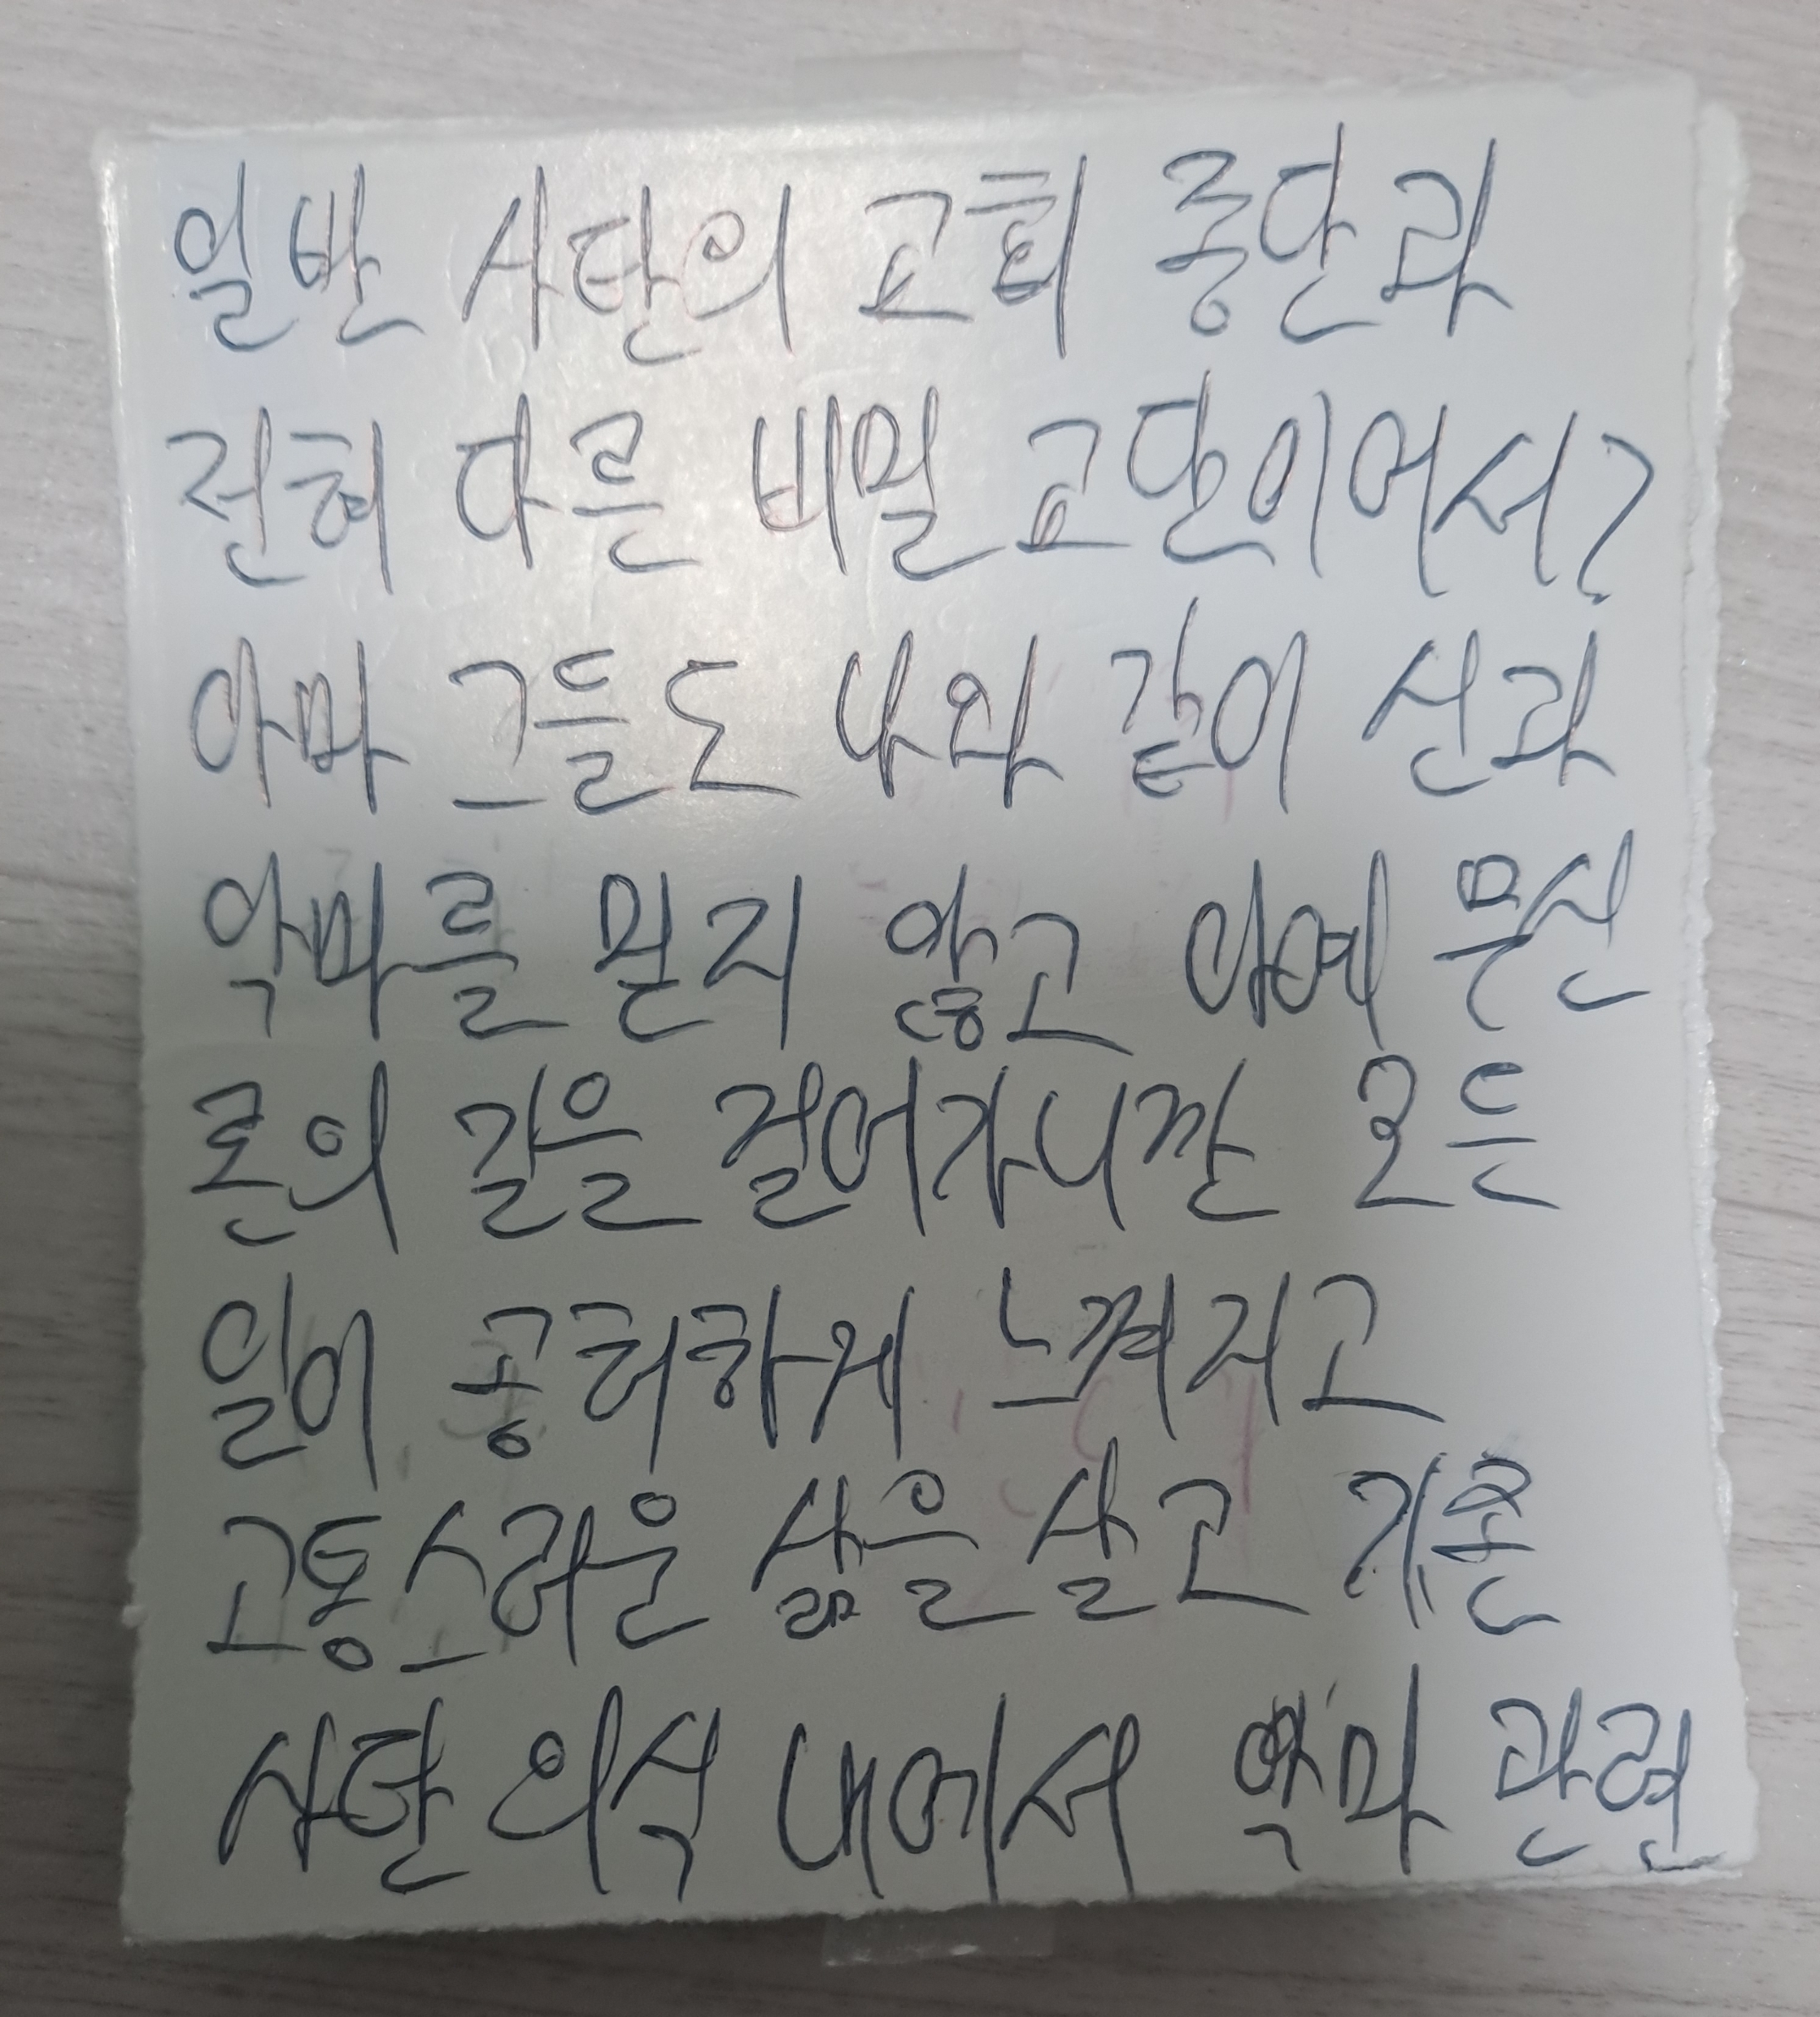 일반 사단의 교회 종단과
전혀 다른 비밀 교단이어서?
아마 그들도 나와 같이 신과
악마를 믿지 않고 아예 무신
론의 길을 걸어가니깐 모든
일이 공허하게 느껴지고
고통스러운 삶을 살고 기존
사단 의식 내에서 악마 관련